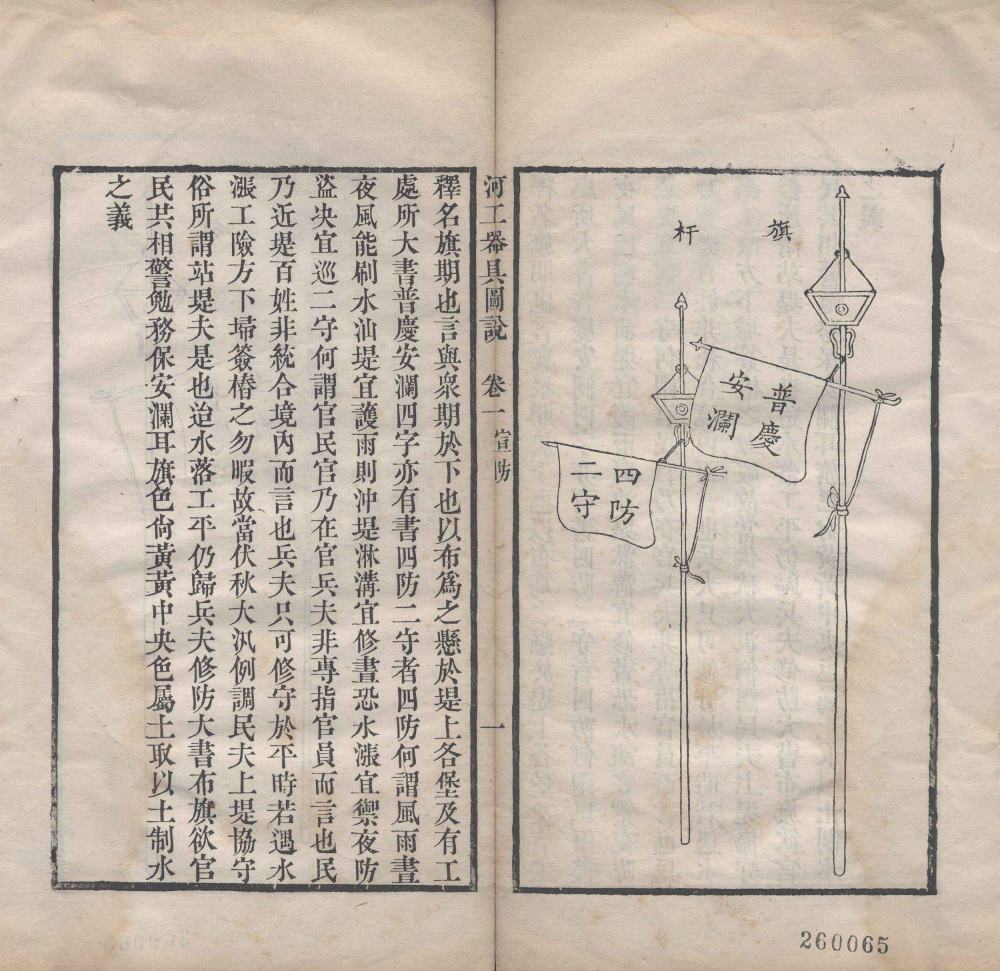 旗杆
普慶
安瀾
四防
二守
260065
河工器具圖說 卷一 宣防 一
釋名旗期也言與衆期於下也以布爲之懸於堤上各堡及有工
處所大書普慶安瀾四字亦有書四防二守者四防何謂風雨晝
夜風能刷水汕堤宜護雨則沖堤淋溝宜修晝恐水漲宜禦夜防
盜決宜巡二守何謂官民官乃在官兵夫非專指官員而言也民
乃近堤百姓非統合境內而言也兵夫只可修守於平時若遇水
漲工險方下埽簽樁之勿暇故當伏秋大汛例調民夫上堤協守
俗所謂站堤夫是也迨水落工平仍歸兵夫修防大書布旗欲官
民共相警勉務保安瀾耳旗色尙黃黃中央色屬土取以土制水
之義